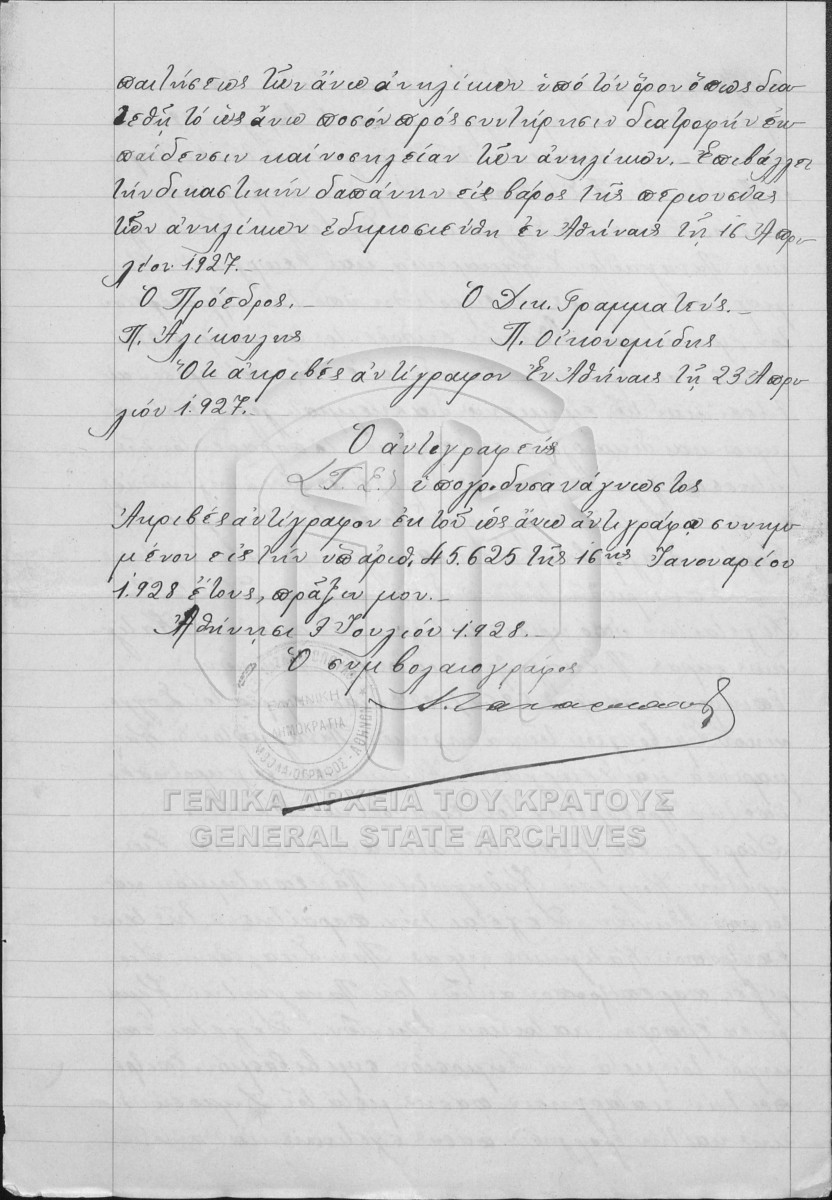 παιτήσεως τῶν ἄνω ἀνηλίκων ὑπό τόν ὅρον ὅπως δια
τεθῇ τό ὡς ἄνω ποσόν πρός συντήρησιν διατροφήν ἐκ
παίδευσιν καί νοσηλείαν τῶν ἀνηλίκων. Ἐπιβάλλει
τήν δικαστικήν δαπάνην εἰς βάρος τῆς περιουσίας
τῶν ἀνηλίκων ἐδημοσιεύθη ἐν Ἀθήναις τῇ 16 Ἀπρι
λίου 1927.
Ὁ Πρόεδρος. Ὁ Δικ. Γραμματεύς.
Π. Ἀλίκουλης Π. Οἰκονομίδης
Ὅτι ἀκριβές ἀντίγραφον Ἐν Ἀθήναις τῇ 23 Ἀπρι
λίου 1.927.
Ὁ ἀντιγραφεύς
(Τ.Σ.) ὑπογρ. δυσανάγνωστος
Ἀκριβές ἀντίγραφον ἐκ τοῦ ὡς ἄνω ἀντιγράφου συνημ
μένον εἰς τήν ὑπ' ἀριθ. 45.625 τῆς 16ης Ἰανουαρίου
1.928 ἔτους, πρᾶξιν μου.
Ἀθήνησι 3 Ἰουλίου 1.928.
Ὁ συμβολαιογράφος
ΕΛΛΗΝΙΚΗ
ΔΗΜΟΚΡΑΤΙΑ
ΣΥΜΒΟΛΑΙΟΓΡΑΦΟΣ - ΑΘΗΝΩΝ
ΓΕΝΙΚΑ ΑΡΧΕΙΑ ΤΟΥ ΚΡΑΤΟΥΣ
GENERAL STATE ARCHIVES